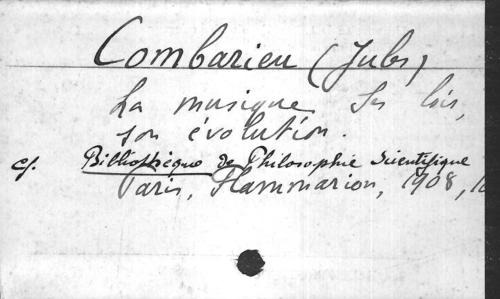 Combarieu (Jules)
La musique Ses lois,
son évolution.
cf. Bibliothèque de Philosophie Scientifique
Paris, Flammarion, 1908,